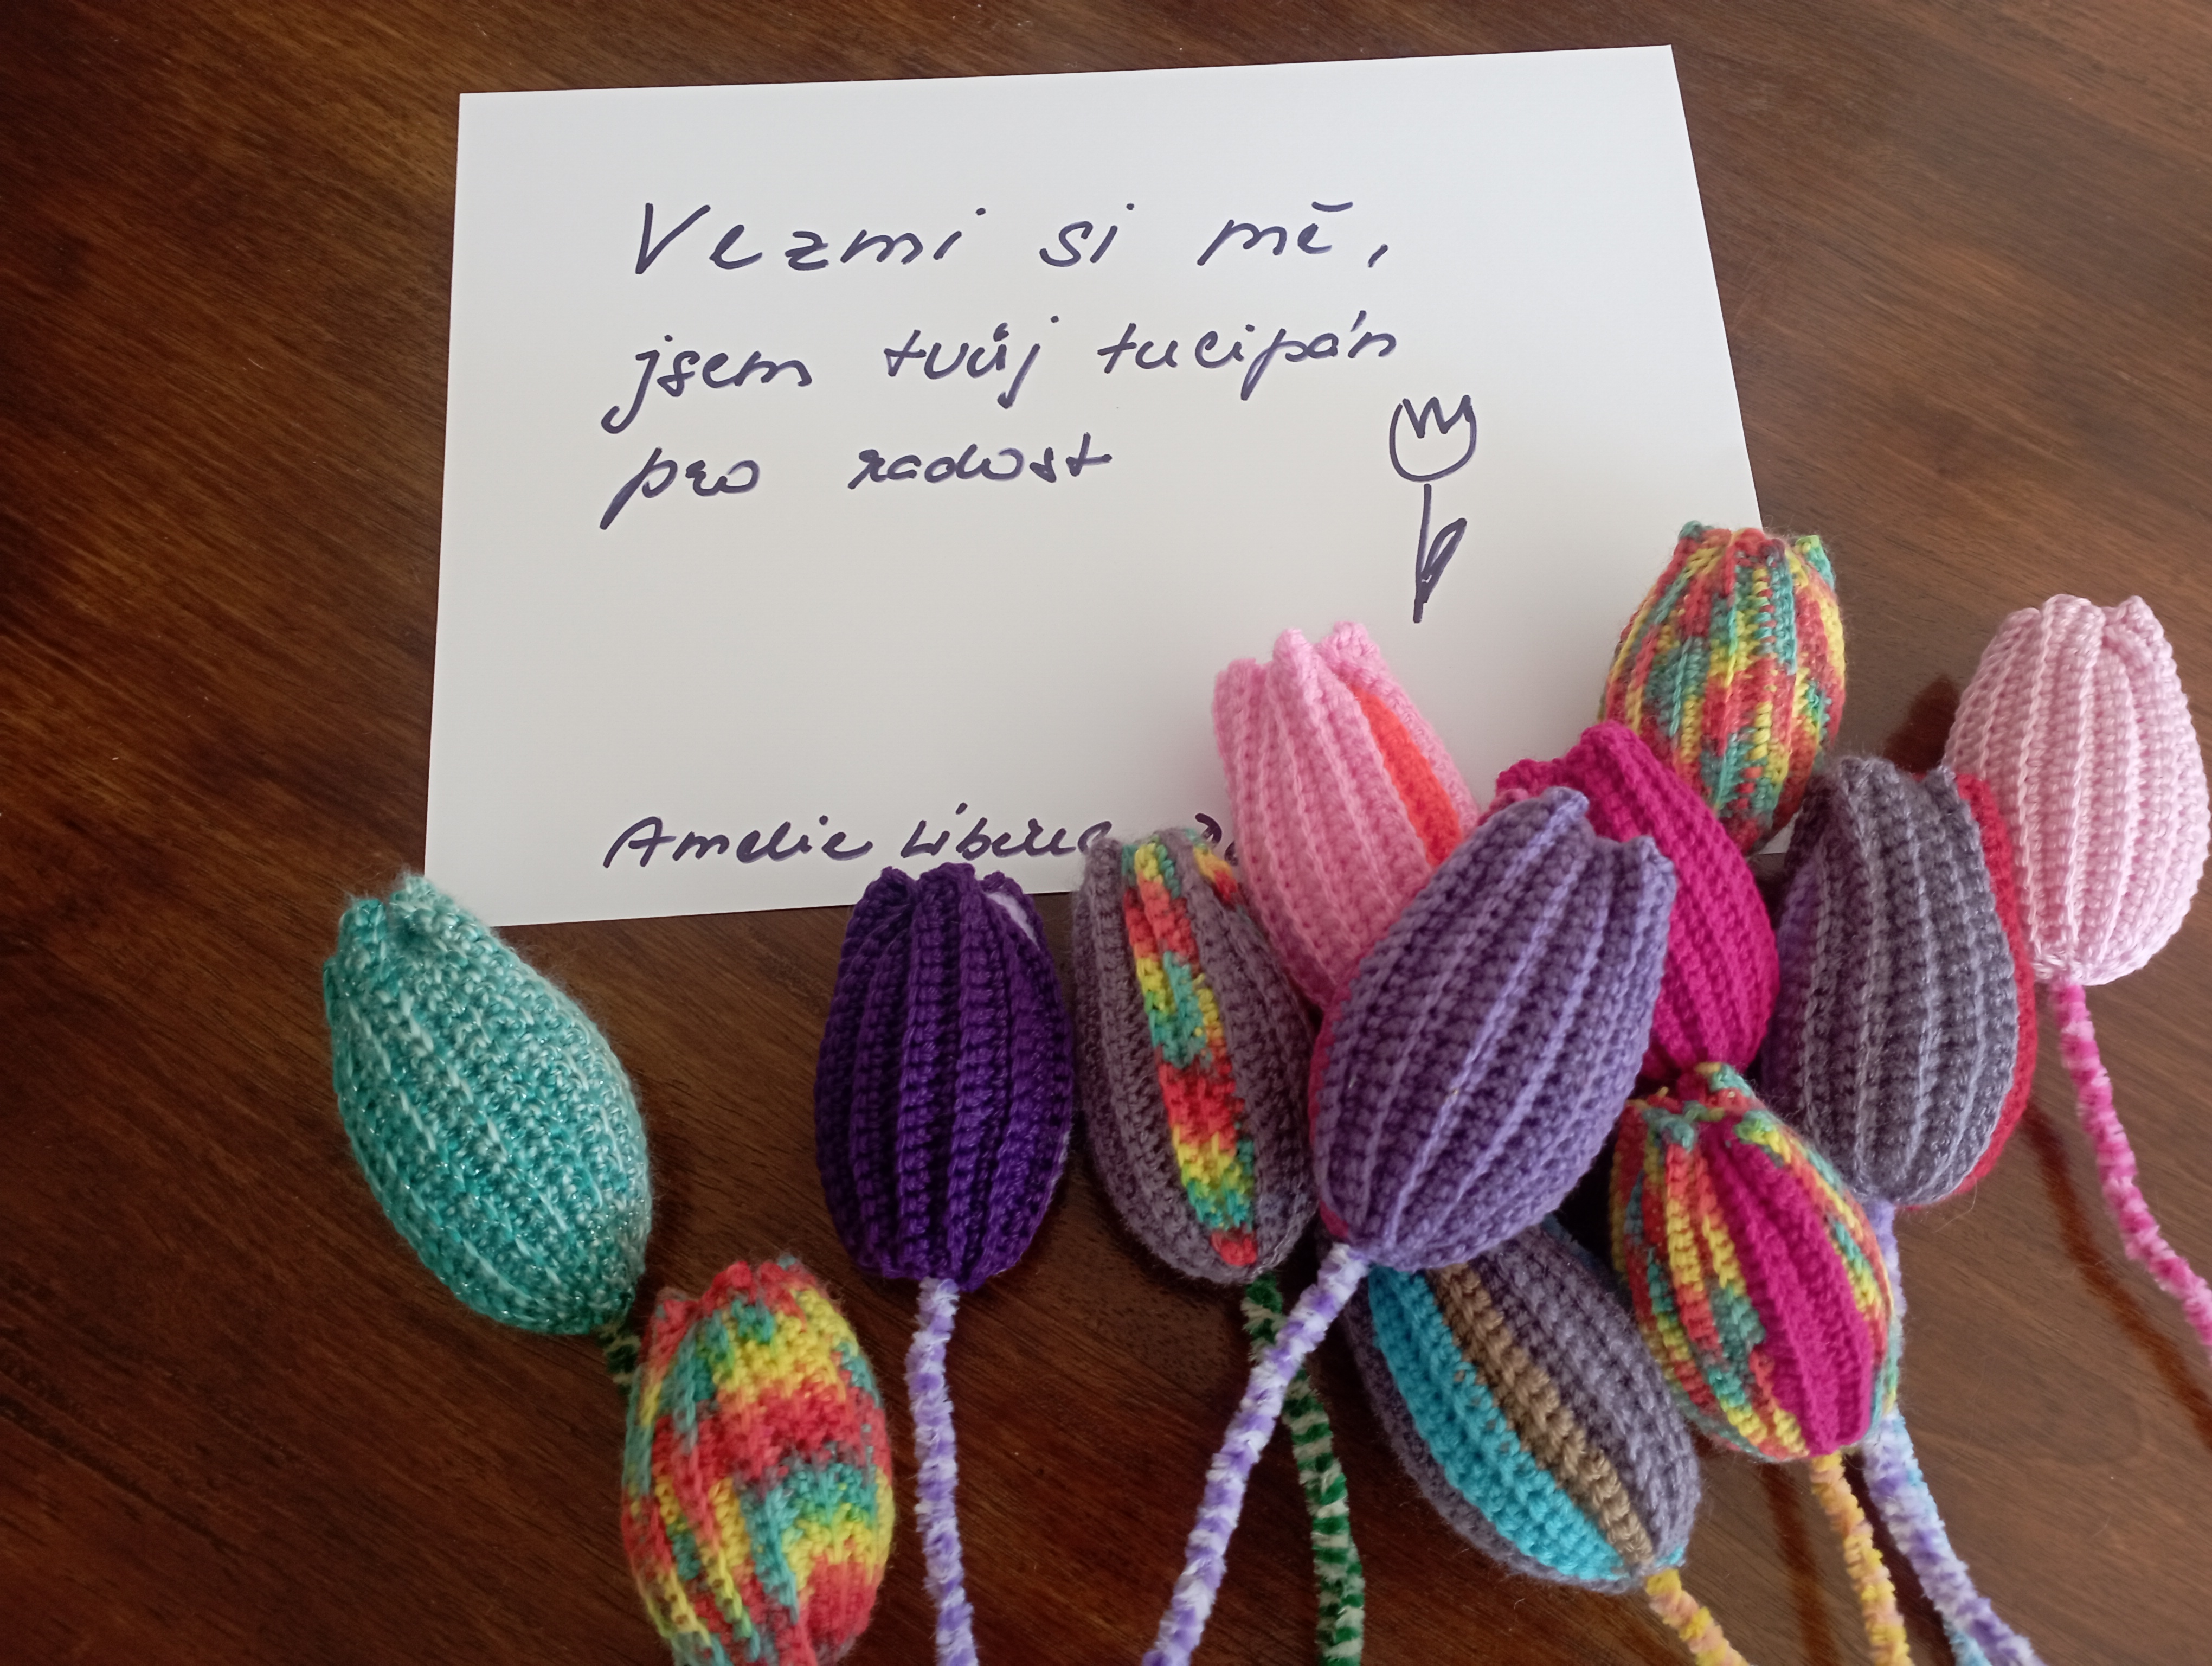 Vezmi si mě,
jsem tvůj tucipán
pro radost
Amelie